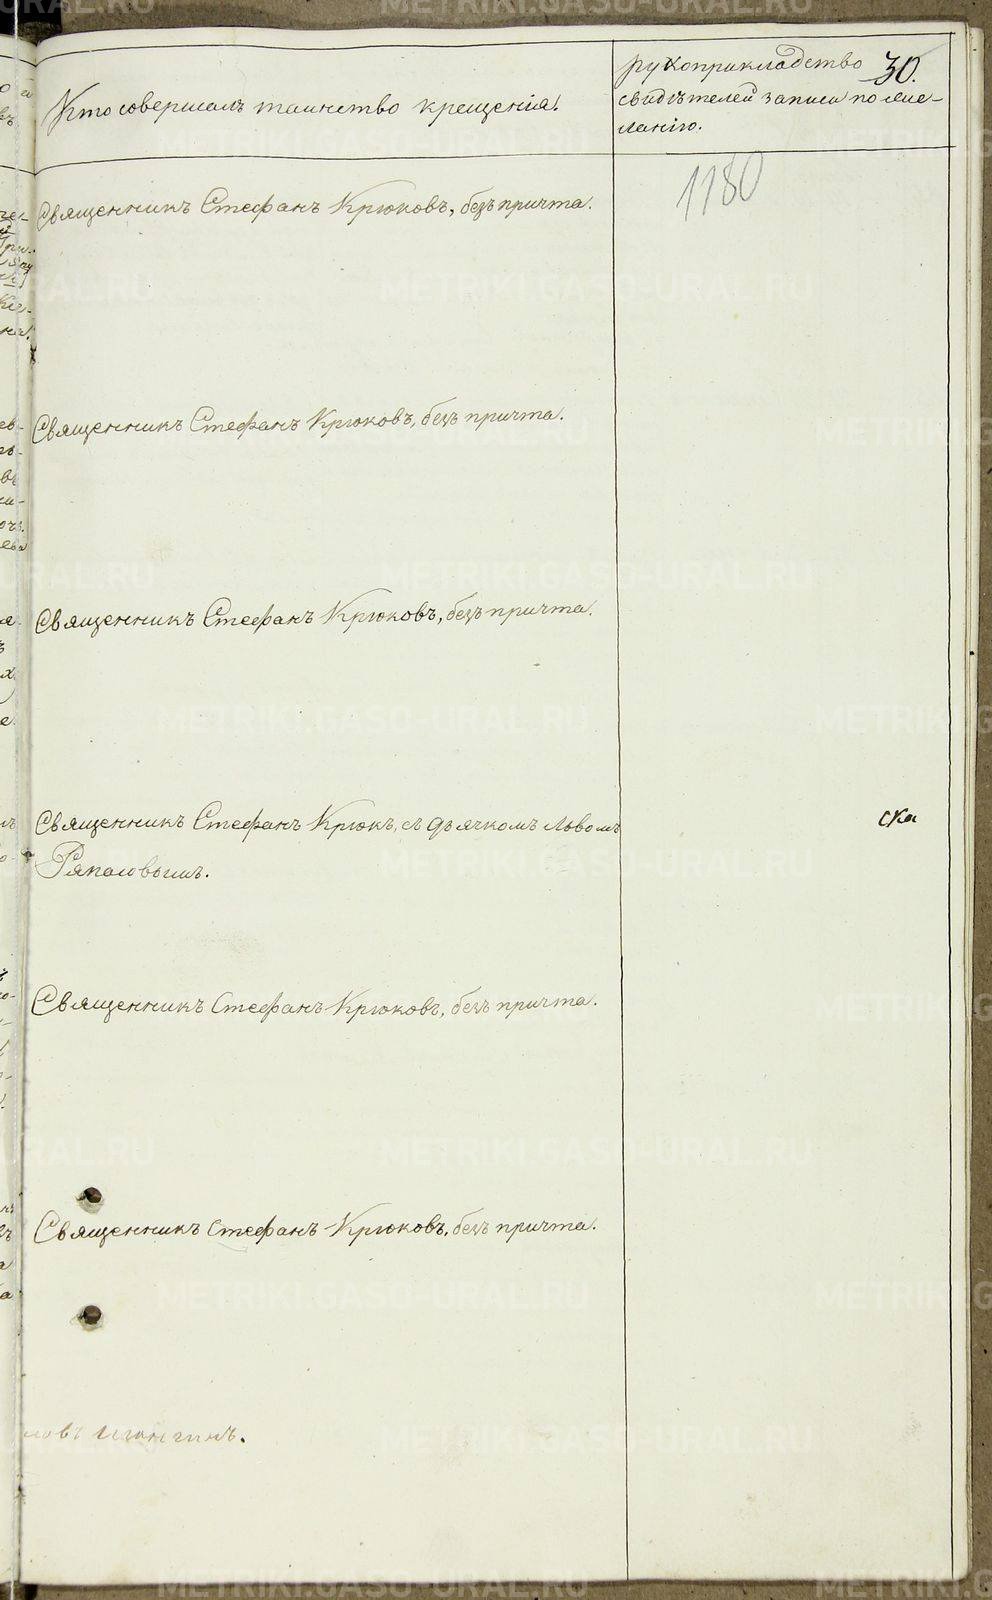 Кто совершалъ таинство крещенія.
рукоприкладство
свидѣтелей записи по же-
ланію.
30.
1180
Священникъ Стефанъ Крюковъ, безъ причта.
Священникъ Стефанъ Крюковъ, безъ причта.
Священникъ Стефанъ Крюковъ, безъ причта.
Священникъ Стефанъ Крюкъ, съ дьячкомъ Львомъ
Ряпасовымъ.
ска
Священникъ Стефанъ Крюковъ, безъ причта.
Священникъ Стефанъ Крюковъ, безъ причта.
METRIKI.GASO-URAL.RU